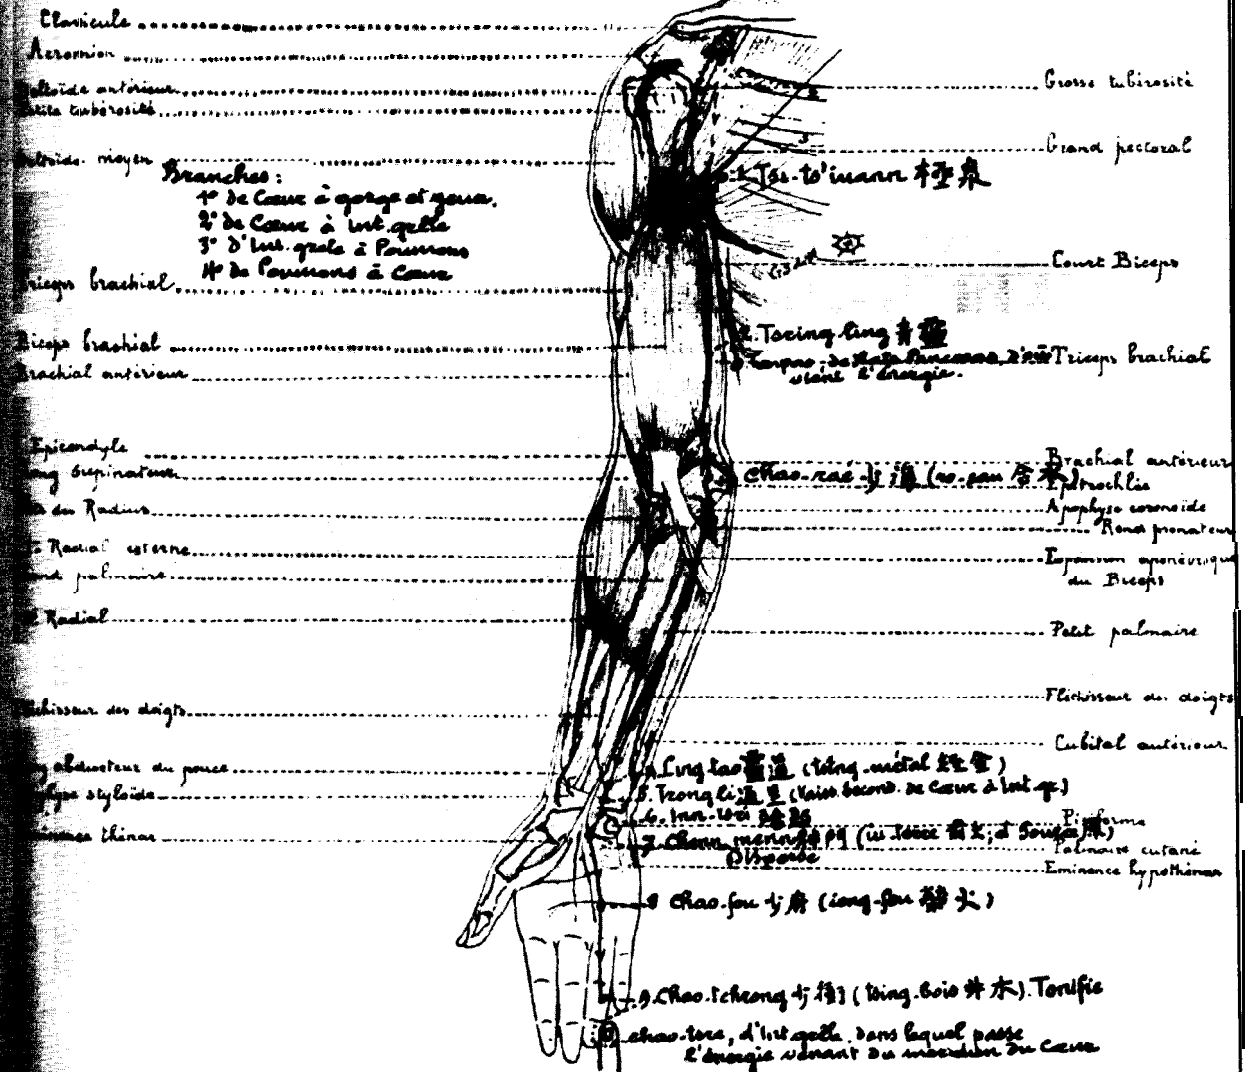 Clavicule
Acromion
Deltoïde antérieur
Petite tubérosité
Deltoïde moyen
Branches:
1° de Cœur à gorge et yeux.
2° de Cœur à Int. grêle
3° d'Int. grele à Poumons
4° de Poumons à Cœur
Triceps brachial
Biceps brachial
Brachial antérieur
Epicondyle
Long Supinateur
du Radius
Radial externe
palmaire
Radial
Fléchisseur des doigts
abducteur du pouce
styloïde
Eminence thénar
Grosse tubérosité
Grand pectoral
1. Tsi-ts'iuann 極泉
Court Biceps
2. Tsring-ling 青靈
de Rate Pancreas, d'où
vient l'énergie.
Triceps brachial
Brachial antérieur
3 Chao-raé 少海 (ro-eau 合水)
Epitrochlée
Apophyse coronoïde
Rond pronateur
Expansion aponévrotique
du Biceps
Petit palmaire
Fléchisseur des doigts
Cubital antérieur
4. Ling-tao 靈道 (tsing-métal 經金)
5. Trong-li 通里 (Vaiss. Second. de Cœur à Int. gr.)
6. Inn-tsri 陰郄
Pisiforme
7. Chenn-menn 神門 (iu-terre 俞土; et Source 原)
Disperse
Palmaire cutané
Eminence hypothénar
8 Chao-fou 少府 (iong-feu 榮火)
9. Chao-tchrong 少衝 (tsing-bois 井木). Tonifie
chao-tsre, d'Int grelle dans lequel passe
l'énergie venant du meridien du Cœur